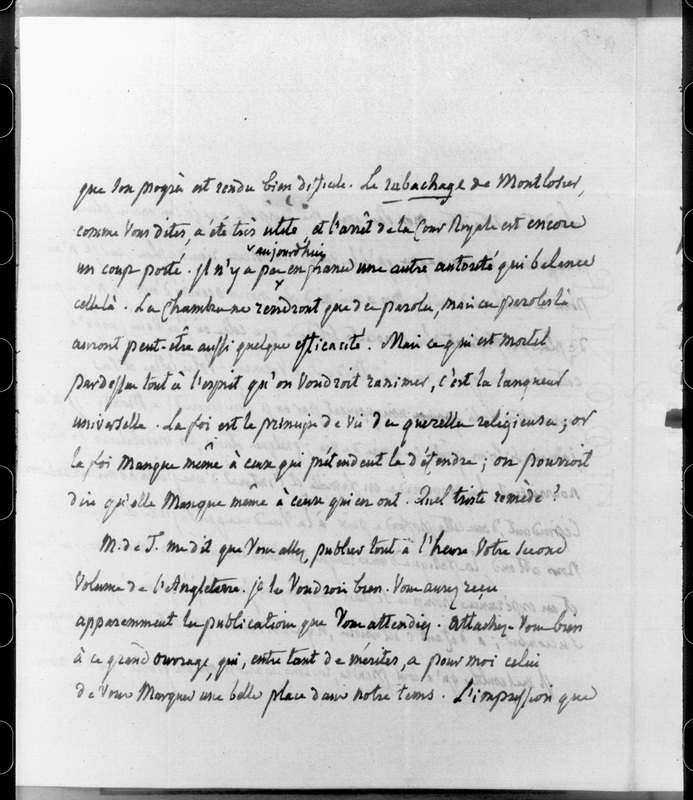 que son progrès est rendu bien difficile. Le rabachage de Montlosier,
comme vous dites, a été très utile et l'arrêt de la Cour Royale est encore
aujourd'hui
un coup porté. jl n'y a pas en france une autre autorité qui balance
cellelà. Les Chambres ne rendront que des paroles, mais ces paroles là
auront peut-être aussi quelque efficacité. Mais ce qui est mortel
pardessus tout à l'esprit qu'on voudroit ranimer, c'est la langueur
universelle. La foi est le principe de vie des querelles religieuses ; or
la foi manque même à ceux qui prétendent la défendre ; on pourroit
dire qu'elle manque même à ceux qui en ont. Quel triste remède !
M. de T. me dit que vous allez publier tout à l'heure votre second
volume de l'Angleterre. je le voudrois bien. Vous aurez reçu
apparemment les publications que vous attendiez. Attachez-vous bien
à ce grand ouvrage, qui, entre tant de mérites, a pour moi celui
de vous marquer une belle place dans notre tems. L'impression que